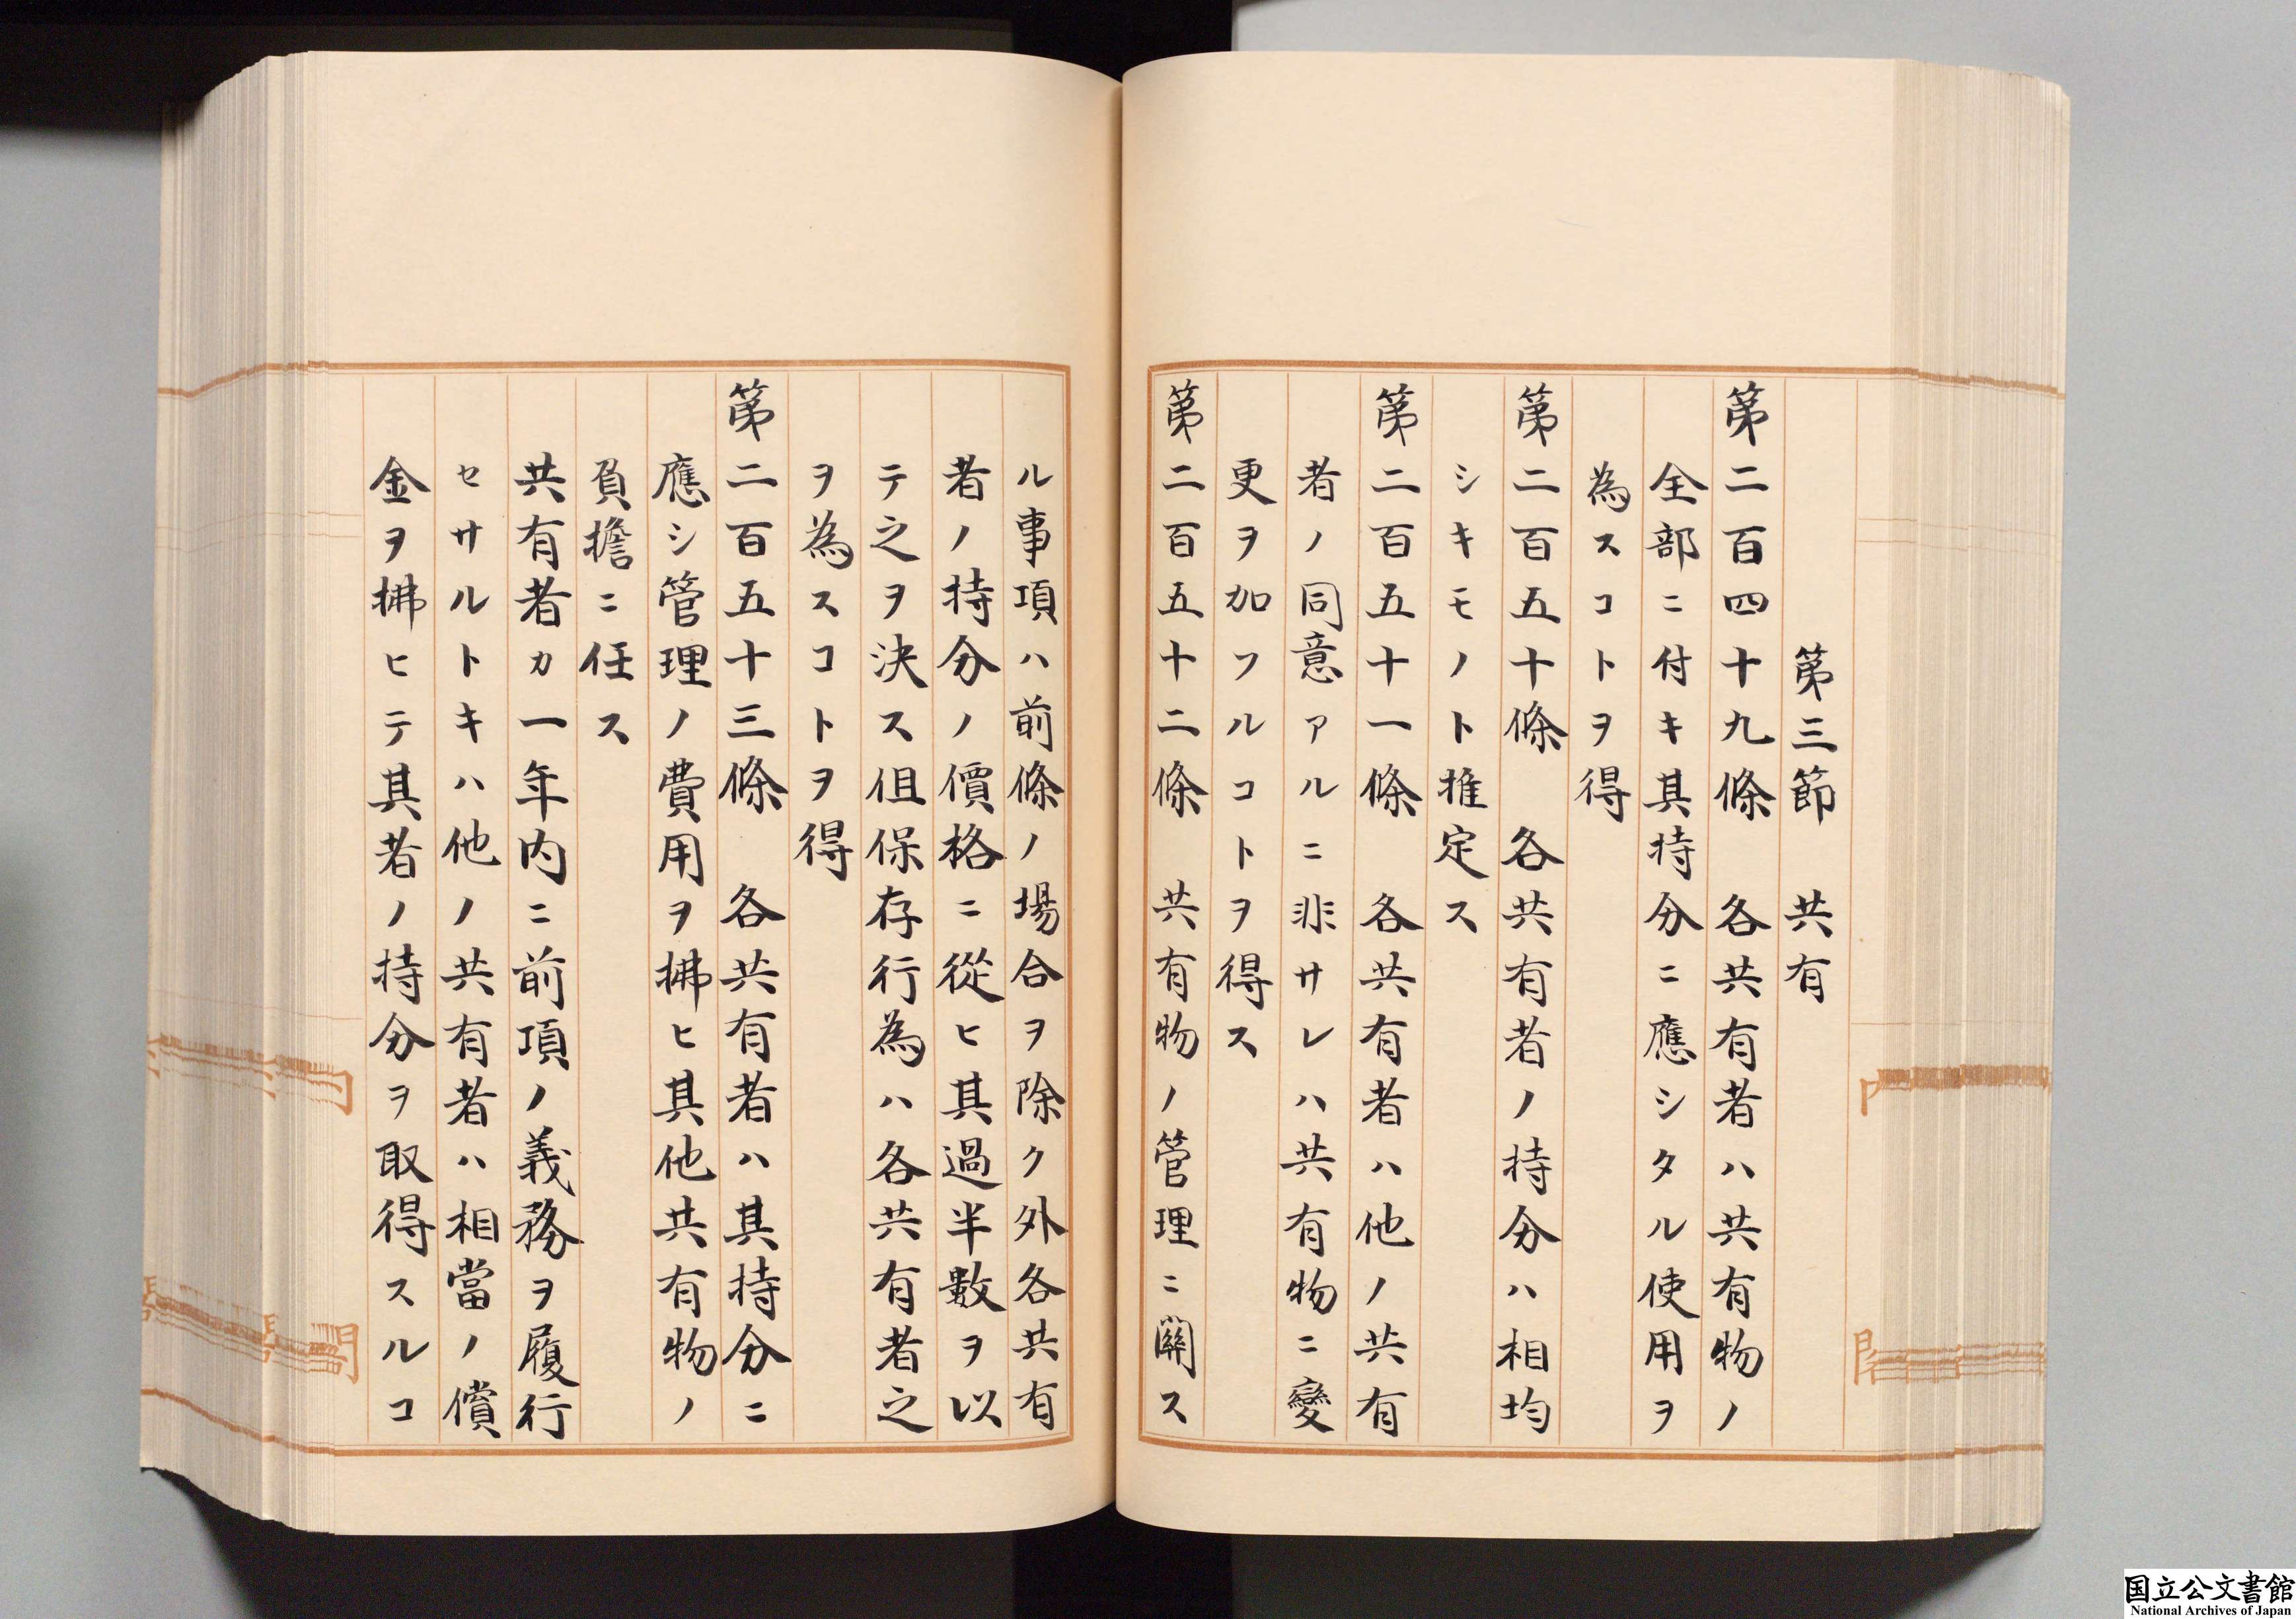 第三節　共有
第二百四十九條　各共有者ハ共有物ノ
全部ニ付キ其持分ニ應シタル使用ヲ
為スコトヲ得
第二百五十條　各共有者ノ持分ハ相均
シキモノト推定ス
第二百五十一條　各共有者ハ他ノ共有
者ノ同意アルニ非サレハ共有物ニ變
更ヲ加フルコトヲ得ス
第二百五十二條　共有物ノ管理ニ關ス
ル事項ハ前條ノ場合ヲ除ク外各共有
者ノ持分ノ價格ニ從ヒ其過半數ヲ以
テ之ヲ決ス但保存行為ハ各共有者之
ヲ為スコトヲ得
第二百五十三條　各共有者ハ其持分ニ
應シ管理ノ費用ヲ拂ヒ其他共有物ノ
負擔ニ任ス
共有者カ一年内ニ前項ノ義務ヲ履行
セサルトキハ他ノ共有者ハ相當ノ償
金ヲ拂ヒテ其者ノ持分ヲ取得スルコ
国立公文書館
National Archives of Japan